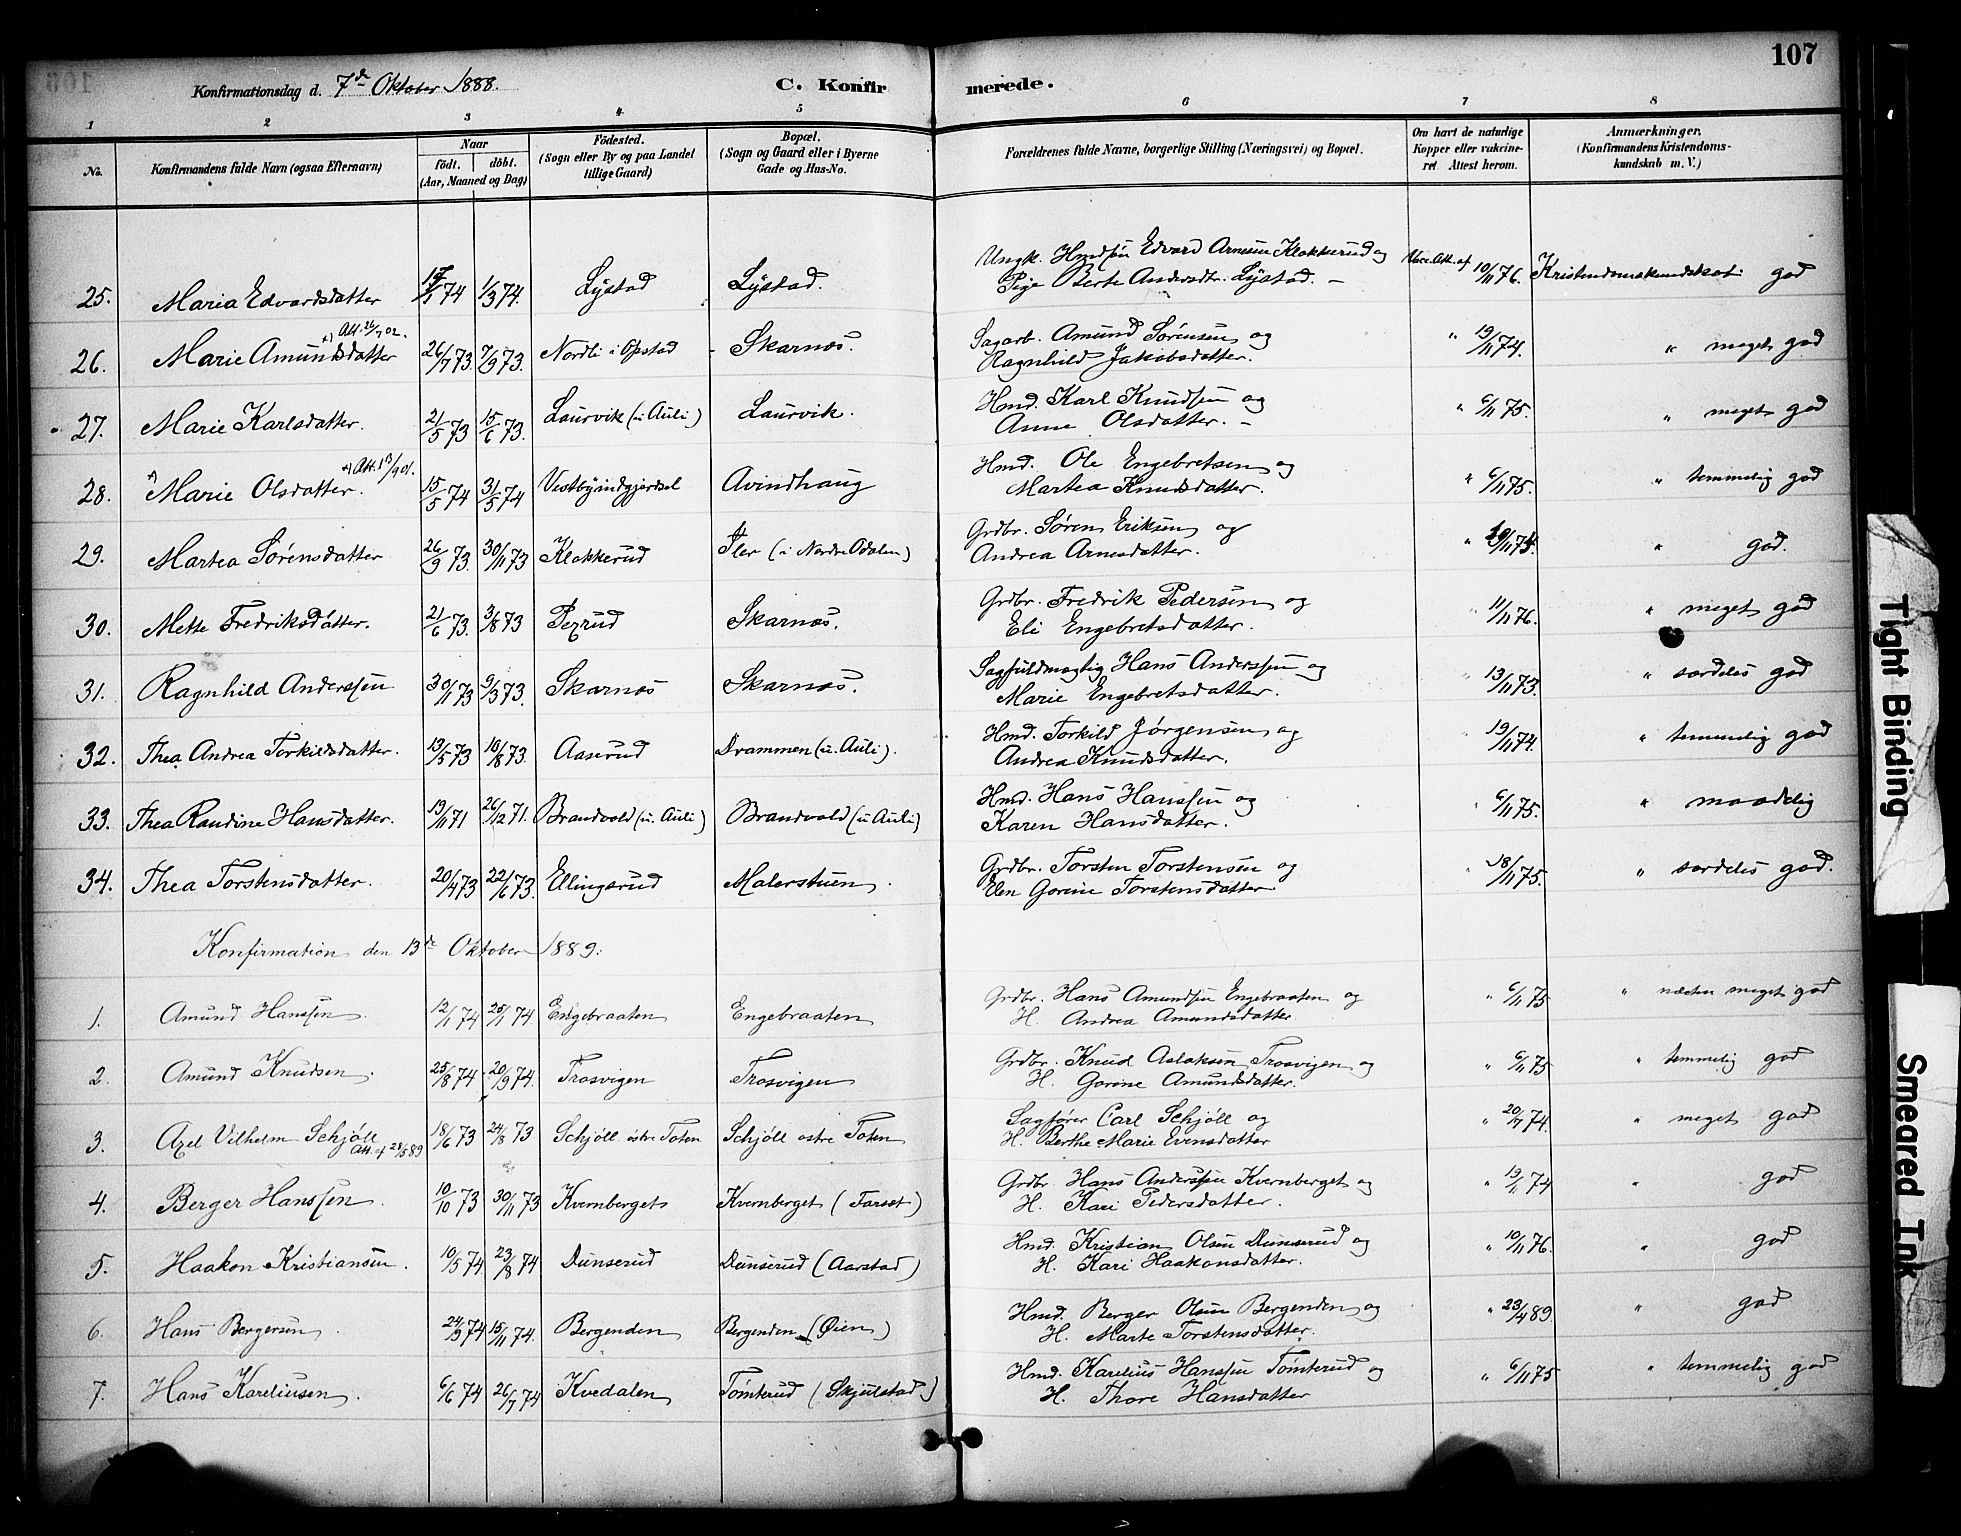 107
Konfirmationsdag d. 7de Oktober 1888.
C. Konfirmerede.
1 2 3 4 5 6 7 8
No.
Konfirmandens fulde Navn (ogsaa Efternavn)
Naar
födt. döbt.
(Aar, Maaned og Dag)
Födested.
(Sogn eller By og paa Landet
tillige Gaard)
Bopæl.
(Sogn og Gaard eller i Byerne
Gade og Hus-No.
Forældrenes fulde Navne, borgerlige Stilling (Næringsvei) og Bopæl.
Om havt de naturlige
Kopper eller vakcine-
ret. Attest herom.
Anmærkninger.
(Konfirmandens Kristendoms-
kundskab m. V.)
25. Maria Edvardsdatter 74 1/3 74. Lystad Lystad. Ungk. Hmdsøn Edvard Arnesen Klokkerud og
Pige Berte Andersdtr. Lystad. – Vacc. Att. af 10/11 76. Kristendomskundskab: god
+) Att. 26/7 02.
26. Marie Amundsdatter 26/7 73 7/9 73. Nordli i Opstad Skarnæs. Sagarb. Amund Sørensen og
Ragnhild Jakobsdatter. " 19/11 74. " meget god
27. Marie Karlsdatter. 21/5 73 15/6 73. Laurvik (u. Auli) Laurvik. Hmd. Karl Knudsen og
Anne Olsdatter. – " 6/11 75. " meget god
28. Marie Olsdatter. 15/5 74 31/5 74 Vestbyindgjerdsel Avindhaug Hmd. Ole Engebretsen og
Martea Knudsdatter. " 6/11 75. " temmelig god
29. Martea Sørensdatter 26/9 73. 30/11 73 Klokkerud Iler (i Nordre Odalen) Grdbr. Søren Eriksen og
Andrea Arnesdatter. " " god.
30. Mette Fredriksdatter. 21/6 73. 3/8 73 Pexrud Skarnæs. Grdbr. Fredrik Pedersen og
Eli Engebretsdatter. 11/11 76. " meget god
31. Ragnhild Anderssen 30/1 73 9/3 73. Skarnæs Skarnæs. Sagfuldmægtig Hans Anderssen og
Marie Engebretsdatter. 13/11 73. " særdeles god
32. Thea Andrea Torkildsdatter. 13/5 73 10/8 73. Aaserud Drammen (u. Auli). Hmd. Torkild Jørgensen og
Andrea Knudsdatter. 19/11 74. " temmelig god
33. Thea Randine Hansdatter. 13/11 71 26/12 71. Brandvold (u. Auli) Brandvold (u. Auli) Hmd. Hans Hanssen og
Karen Hansdatter. 6/11 75. " maadelig
34. Thea Torstensdatter. 20/4 73 22/6 73. Ellingsrud Malerstuen. Grdbr. Torsten Torstensen og
Elen Gorine Torstensdatter 18/11 75. " særdeles god.
Konfirmation den 13de Oktober 1889.
1. Amund Hanssen. 12/1 74 25/1 74. Engebraaten Engebraaten Grdbr. Hans Amundsen Engebraaten og
H. Andrea Amundsdatter " 6/11 75 " næsten meget god
2. Amund Knudsen. 25/8 74 20/9 74. Trosvigen Trosvigen Grdbr. Knud Aslaksen Trosvigen og
H. Gorine Amundsdatter. " 6/11 75 " temmelig god
3. Axel Vilhelm Schjöll 18/6 73 24/8 73 Schjöll østre Toten Schjöll østre Toten Sagfører Carl Schjöll og
Att. af 28/5 89 H. Berthe Marie Evensdatter " 20/7 74. " meget god
4. Berger Hanssen. 10/10 73 30/11 73 Kvernberget Kvernberget (Farset) Grdbr. Hans Anderssen Kvernberget og
H. Kari Pedersdatter. " 74 " god
5. Haakon Kristiansen. 10/5 74 23/8 74 Dunserud Dunserud (Aarstad) Hmd. Kristian Olsen Dunserud og
H. Kari Haakonsdatter. " 10/11 76. " god
6. Hans Bergersen. 24/9 74 15/11 74. Bergenden Bergenden (Øien) Hmd. Berger Olsen Bergenden og
H. Marte Torstensdatter. " 23/4 89 " god
7. Hans Kareliusen. 6/6 74 26/7 74 Kvedalen Tomterud (Skjulstad) Hmd. Karelius Hanssen Tomterud og
H. Thore Hansdatter " 6/11 75 " temmelig god
Tight Binding
Smeared Ink